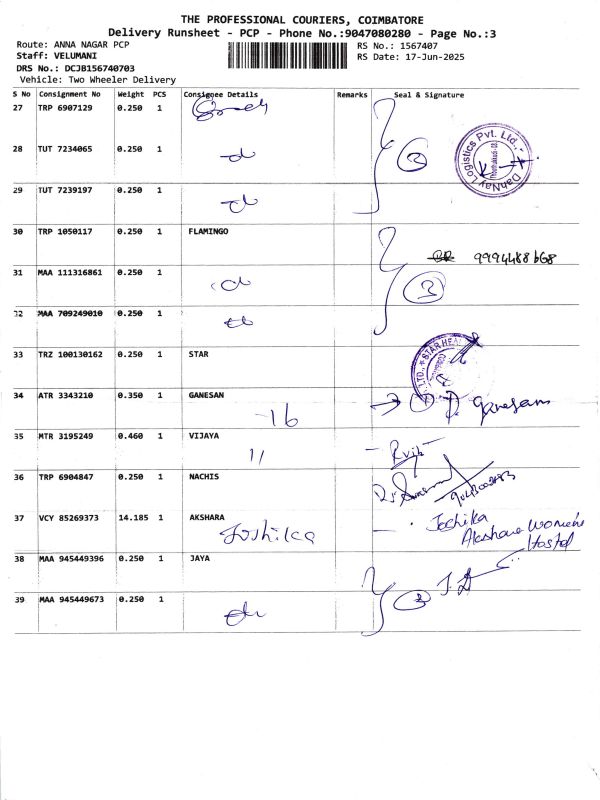 THE PROFESSIONAL COURIERS, COIMBATORE
Delivery Runsheet - PCP - Phone No.:9047080280 - Page No.:3
Route: ANNA NAGAR PCP
RS No.: 1567407
Staff: VELUMANI
RS Date: 17-Jun-2025
DRS No.: DCJB156740703
Vehicle: Two Wheeler Delivery
S No Consignment No Weight PCS Consignee Details Remarks Seal & Signature
27 TRP 6907129 0.250 1
28 TUT 7234065 0.250 1
DahNay Logistics Pvt. Ltd.,
29 TUT 7239197 0.250 1
30 TRP 1050117 0.250 1 FLAMINGO
9994488668
31 MAA 111316861 0.250 1
3
32 MAA 709249010 0.250 1
33 TRZ 100130162 0.250 1 STAR
34 ATR 3343210 0.350 1 GANESAN
16
Ganesan
35 MTR 3195249 0.460 1 VIJAYA
11
36 TRP 6904847 0.250 1 NACHIS
37 VCY 85269373 14.185 1 AKSHARA
Joshika
Joshika
Akshara Women's
Hostel
38 MAA 945449396 0.250 1 JAYA
39 MAA 945449673 0.250 1